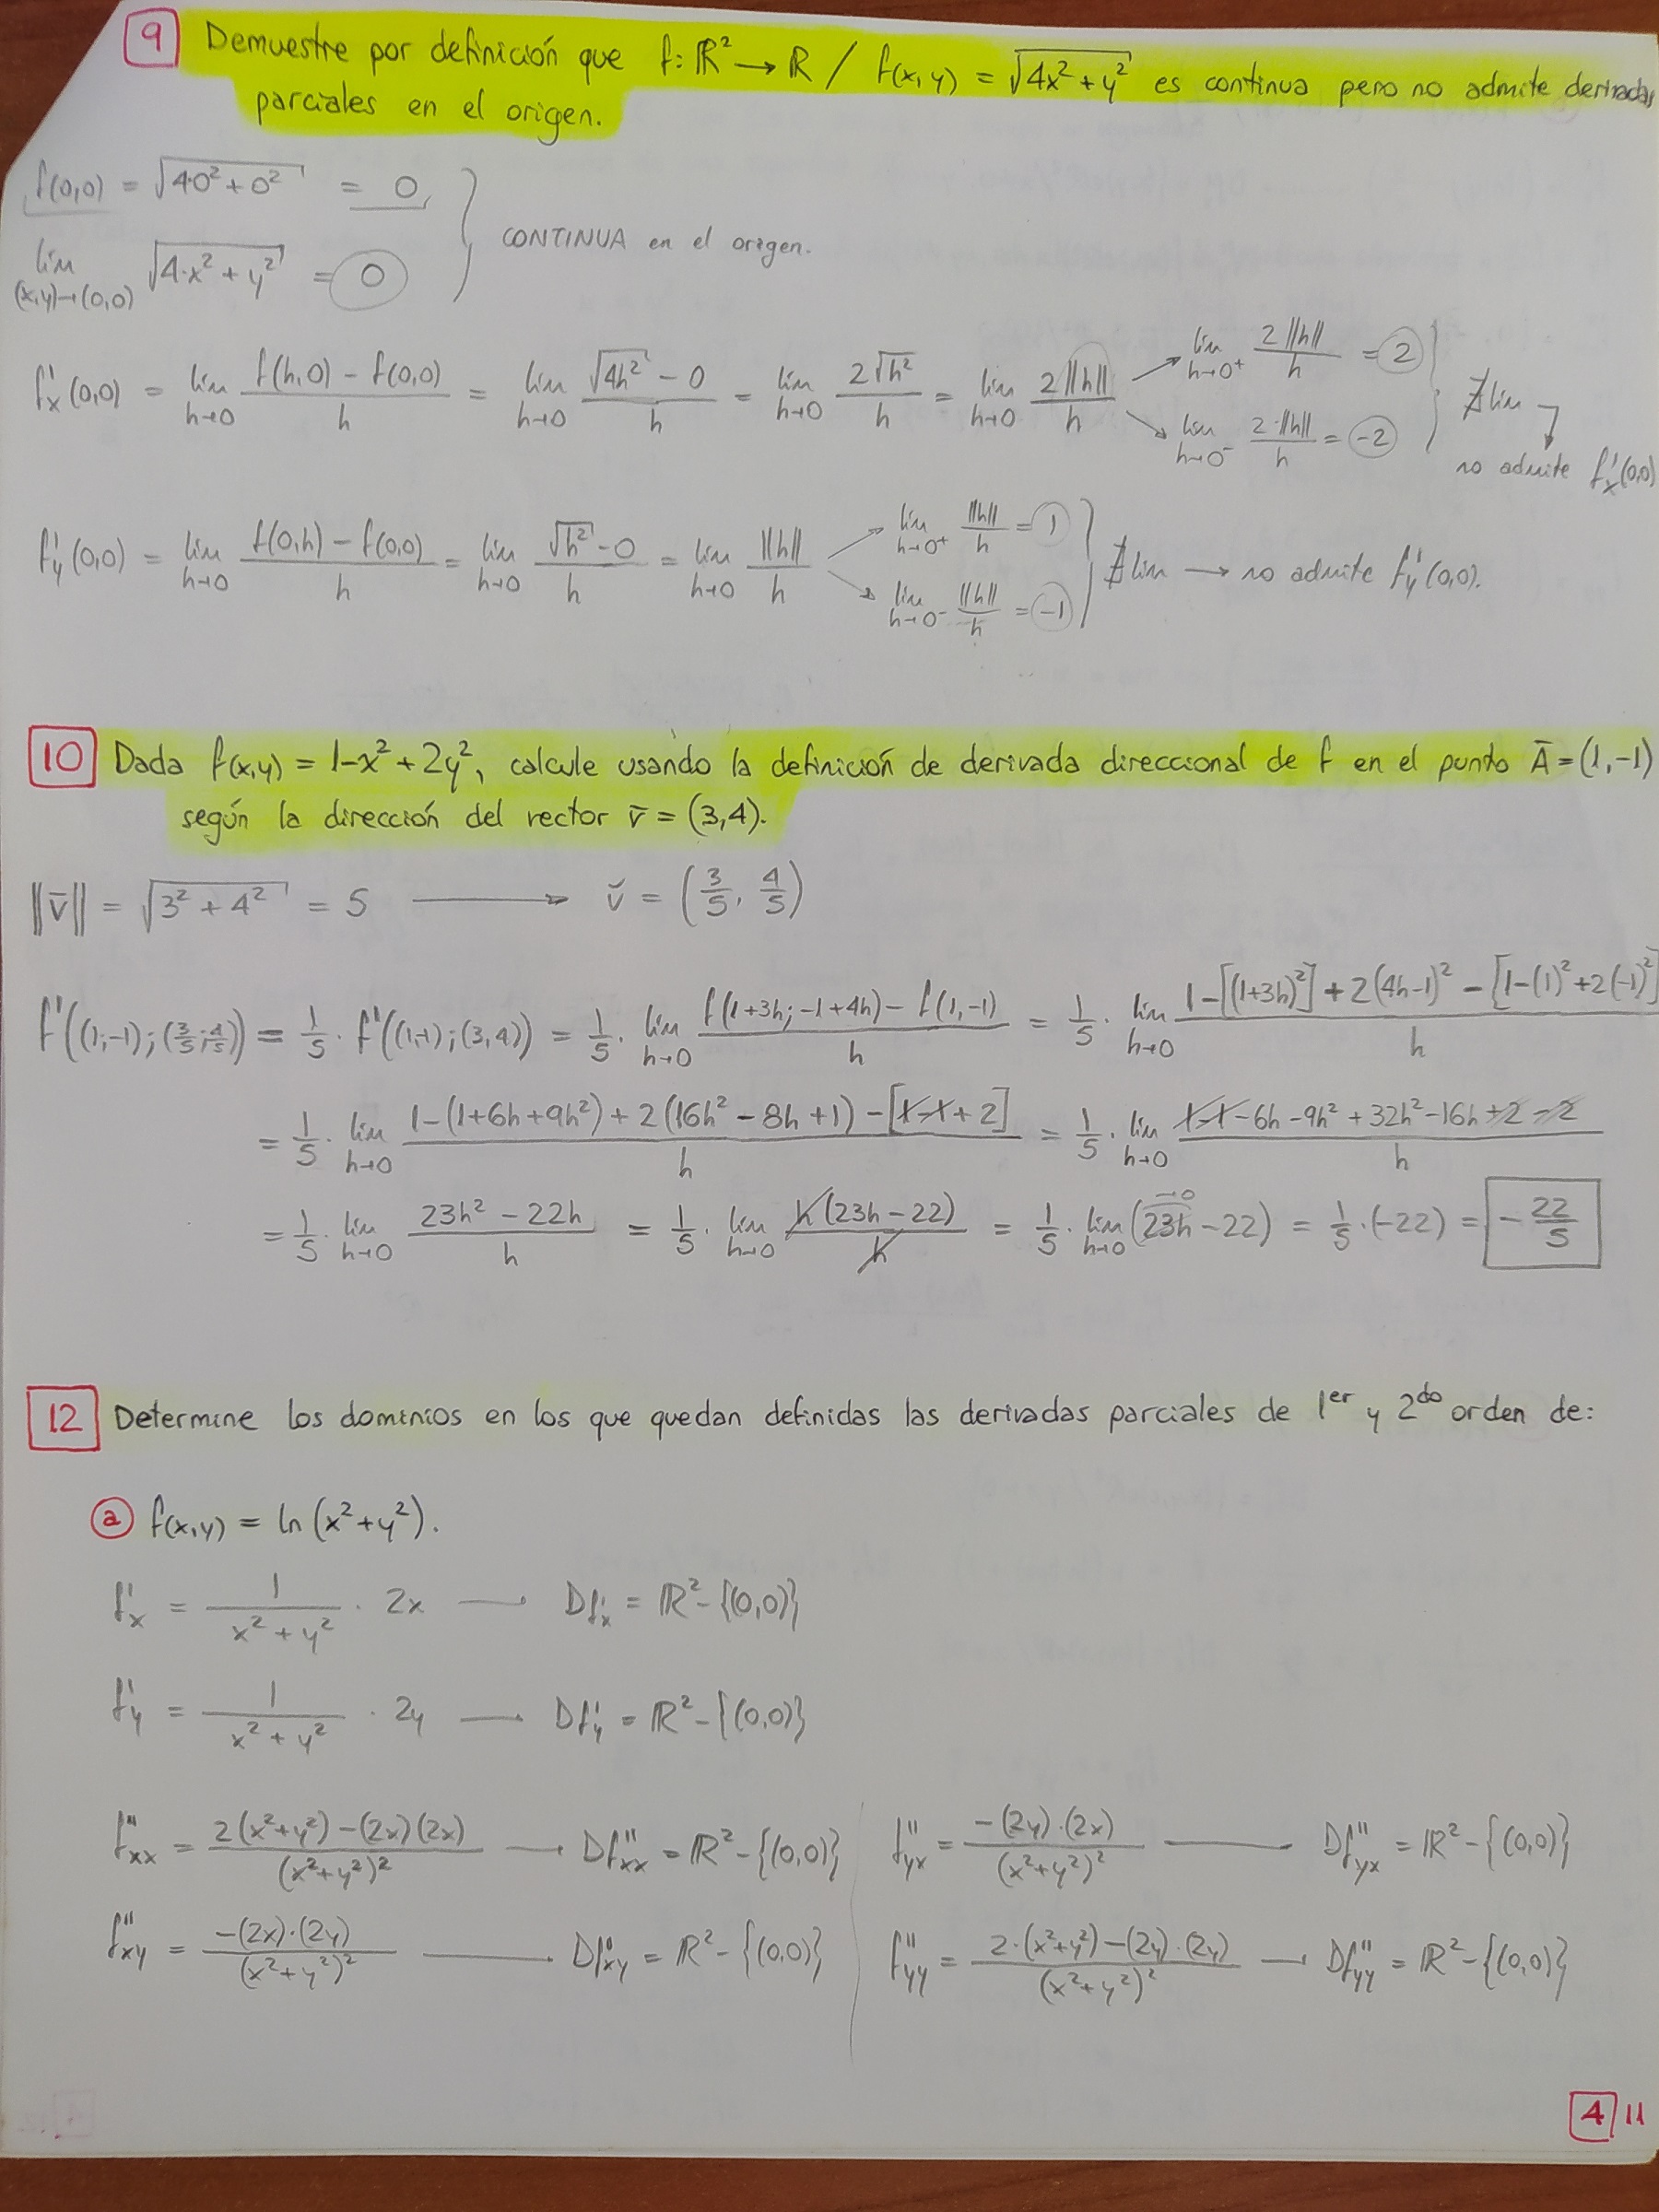 9 Demuestre por definición que f: ℝ² → ℝ / f(x,y) = √(4x²+y²) es continua pero no admite derivadas
parciales en el origen.
f(0,0) = √(4·0²+0²) = 0
lím (x,y)→(0,0) √(4·x²+y²) = 0 } CONTINUA en el origen.
f'x(0,0) = lím h→0 (f(h,0) - f(0,0))/h = lím h→0 (√(4h²) - 0)/h = lím h→0 2√(h²)/h = lím h→0 2||h||/h
↗ lím h→0⁺ 2||h||/h = 2
↘ lím h→0⁻ 2·||h||/h = -2 } ∄ lím → no admite f'x(0,0)
f'y(0,0) = lím h→0 (f(0,h) - f(0,0))/h = lím h→0 (√(h²) - 0)/h = lím h→0 ||h||/h
↗ lím h→0⁺ ||h||/h = 1
↘ lím h→0⁻ ||h||/h = -1 } ∄ lím → no admite f'y(0,0).
10 Dada f(x,y) = 1-x²+2y², calcule usando la definición de derivada direccional de f en el punto Ā = (1,-1)
según la dirección del vector v̄ = (3,4).
||v̄|| = √(3²+4²) = 5 → v̆ = (3/5, 4/5)
f'((1,-1);(3/5;4/5)) = 1/5 · f'((1,-1);(3,4)) = 1/5 · lím h→0 (f(1+3h;-1+4h) - f(1,-1))/h = 1/5 · lím h→0 (1-[(1+3h)²]+2(4h-1)² - [1-(1)²+2(-1)²])/h
= 1/5 · lím h→0 (1-(1+6h+9h²)+2(16h²-8h+1)-[1-1+2])/h = 1/5 · lím h→0 (1-1-6h-9h²+32h²-16h+2-2)/h
= 1/5 · lím h→0 (23h²-22h)/h = 1/5 · lím h→0 h(23h-22)/h = 1/5 · lím h→0 (23h→0 -22) = 1/5·(-22) = -22/5
12 Determine los dominios en los que quedan definidas las derivadas parciales de 1er y 2do orden de:
a f(x,y) = ln(x²+y²).
f'x = 1/(x²+y²) · 2x — Df'x = ℝ²-{(0,0)}
f'y = 1/(x²+y²) · 2y — Df'y = ℝ²-{(0,0)}
f''xx = (2(x²+y²)-(2x)(2x))/(x²+y²)² — Df''xx = ℝ²-{(0,0)}
f''xy = -(2x)·(2y)/(x²+y²)² — Df''xy = ℝ²-{(0,0)}
f''yx = -(2y)·(2x)/(x²+y²)² — Df''yx = ℝ²-{(0,0)}
f''yy = (2·(x²+y²)-(2y)·(2y))/(x²+y²)² — Df''yy = ℝ²-{(0,0)}
4/11